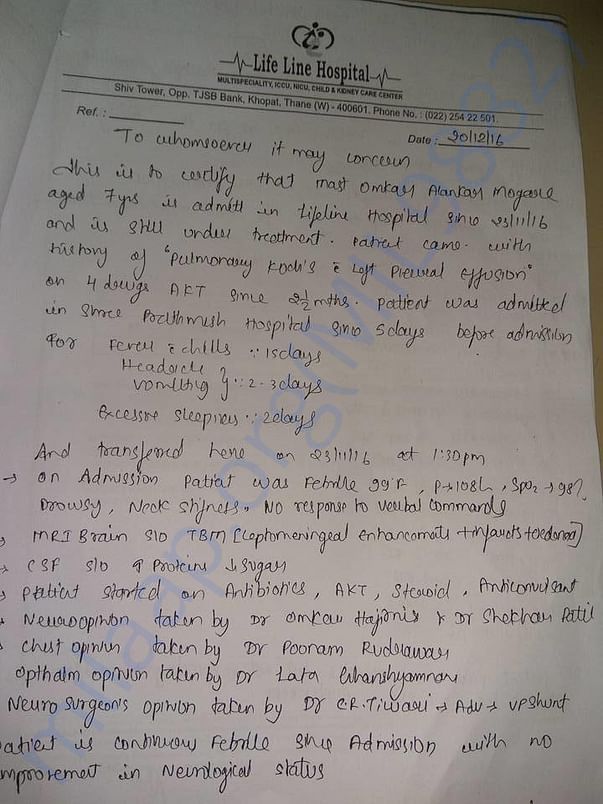 Life Line Hospital
MULTISPECIALITY, ICCU, NICU, CHILD & KIDNEY CARE CENTER
Shiv Tower, Opp. TJSB Bank, Khopat, Thane (W) - 400601. Phone No. : (022) 254 22 501.
Ref. :
Date : 20/12/16
To whomsoever it may concern
This is to certify that mast Omkar Alankar
aged 7yrs is admitt in Lifeline Hospital since 23/11/16
and is still under treatment. Patient came with
history of "Pulmonary Koch's c̄ Left Pleural effusion"
on 4 drugs AKT since 2½ mths. patient was admitted
in Shree Hospital since 5days before admission
For Fever c̄ chills ∵ 15days
Headache
vomitting } ∵ 2-3days
Excessive sleepiness ∵ 2days
And transferred here on 23/11/16 at 1:30pm
→ on Admission Patient was Febrile 99°F, P→108/, SpO2→98%
Drowsy, Neck stifness. NO response to verbal commands
MRI Brain S/O TBM [Leptomeningeal enhancements + infarcts + oedema]
→ CSF S/O ↑ Proteins ↓ sugars
Patient started on Antibiotics, AKT, Steroid, Anticonvulsant
Neuroopinion taken by Dr Omkar & Dr Shekhar Patil
chest opinion taken by Dr Poonam
opthalm opinion taken by Dr Lata
Neuro surgeon's opinion taken by Dr C.R. Tiwari → Adv → VP Shunt
atient is continuous Febrile since Admission with no
mprovement in Neurological status
milaap.org(MIL98321